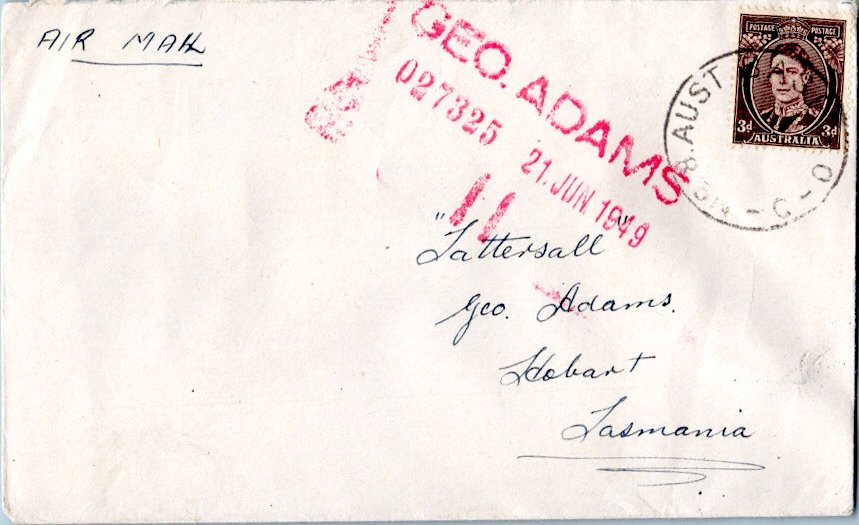 AIR MAIL
GEO. ADAMS
027325 21. JUN. 1949
11
POSTAGE POSTAGE
3d 3d
AUSTRALIA
AUST
"Tattersall"
Geo. Adams.
Hobart
Tasmania